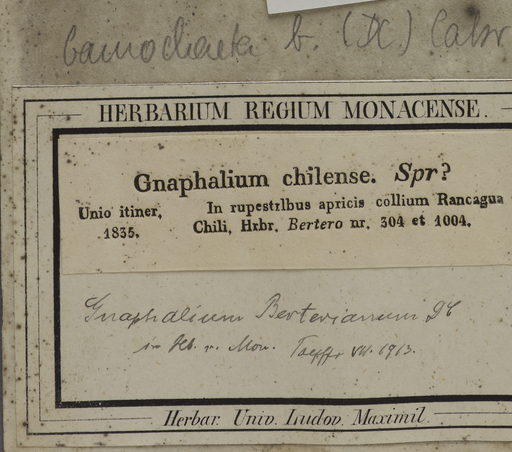 Gamochaeta b. (DC.) Cabr
HERBARIUM REGIUM MONACENSE.
Gnaphalium chilense. Spr?
Unio itiner, In rupestrlbus apricis collium Rancagua
1835. Chili, Hrbr. Bertero nr. 304 et 1004.
Gnaphalium Berterianum DC
in hb. r. Mon. VII. 1913.
Herbar. Univ. Ludov. Maximil.